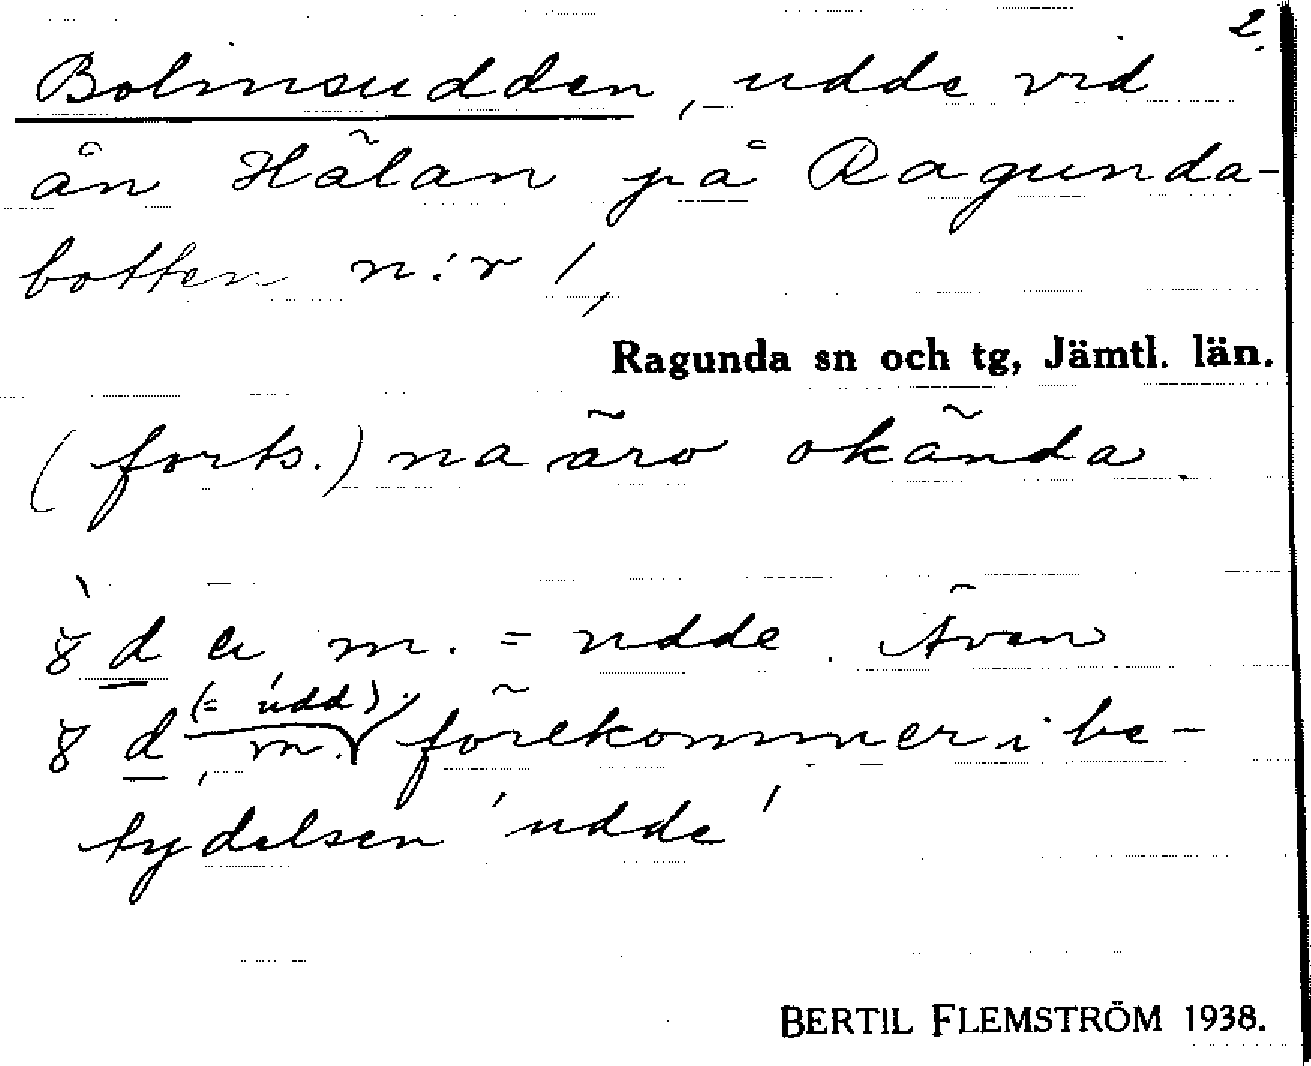 2.
Bolinsudden, udde vid
ån Hälan på Ragunda-
botten n:r 1,
Ragunda sn och tg, Jämtl. län.
(forts.) na äro okända.
m. = udde. Även
(= udd)
m. förekommer i be-
tydelsen 'udde'
BERTIL FLEMSTRÖM 1938.